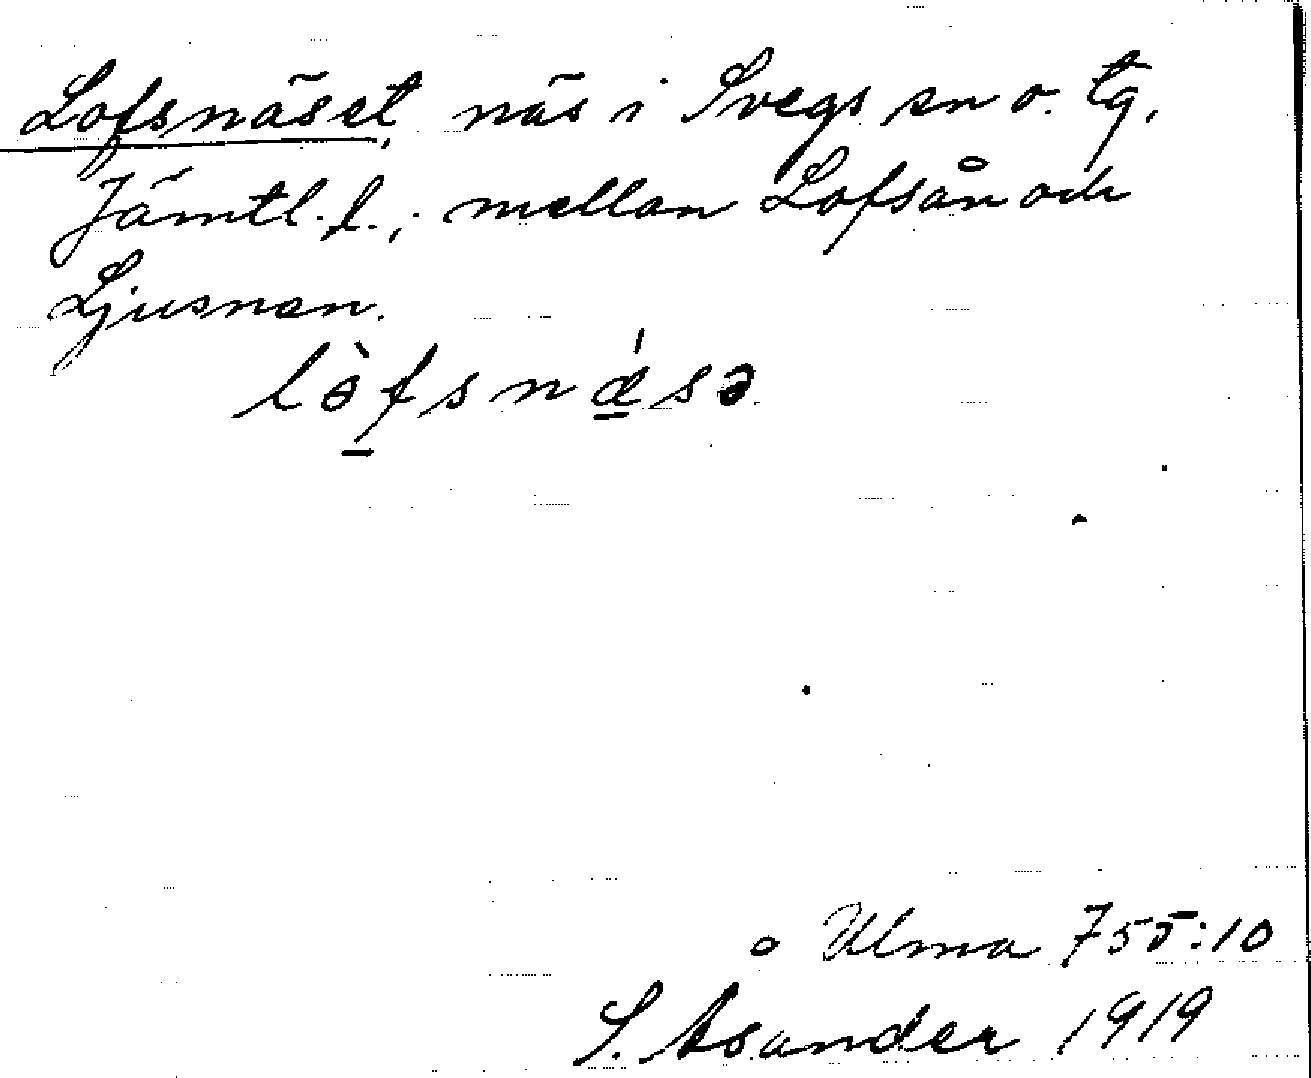 Lofsnäset, näs i Svegs sn o. tg,
Jämtl. l., mellan Lofsån och
Ljusnan.
lòfsnǽsə
o Ulma 755:10
S. Asander 1919